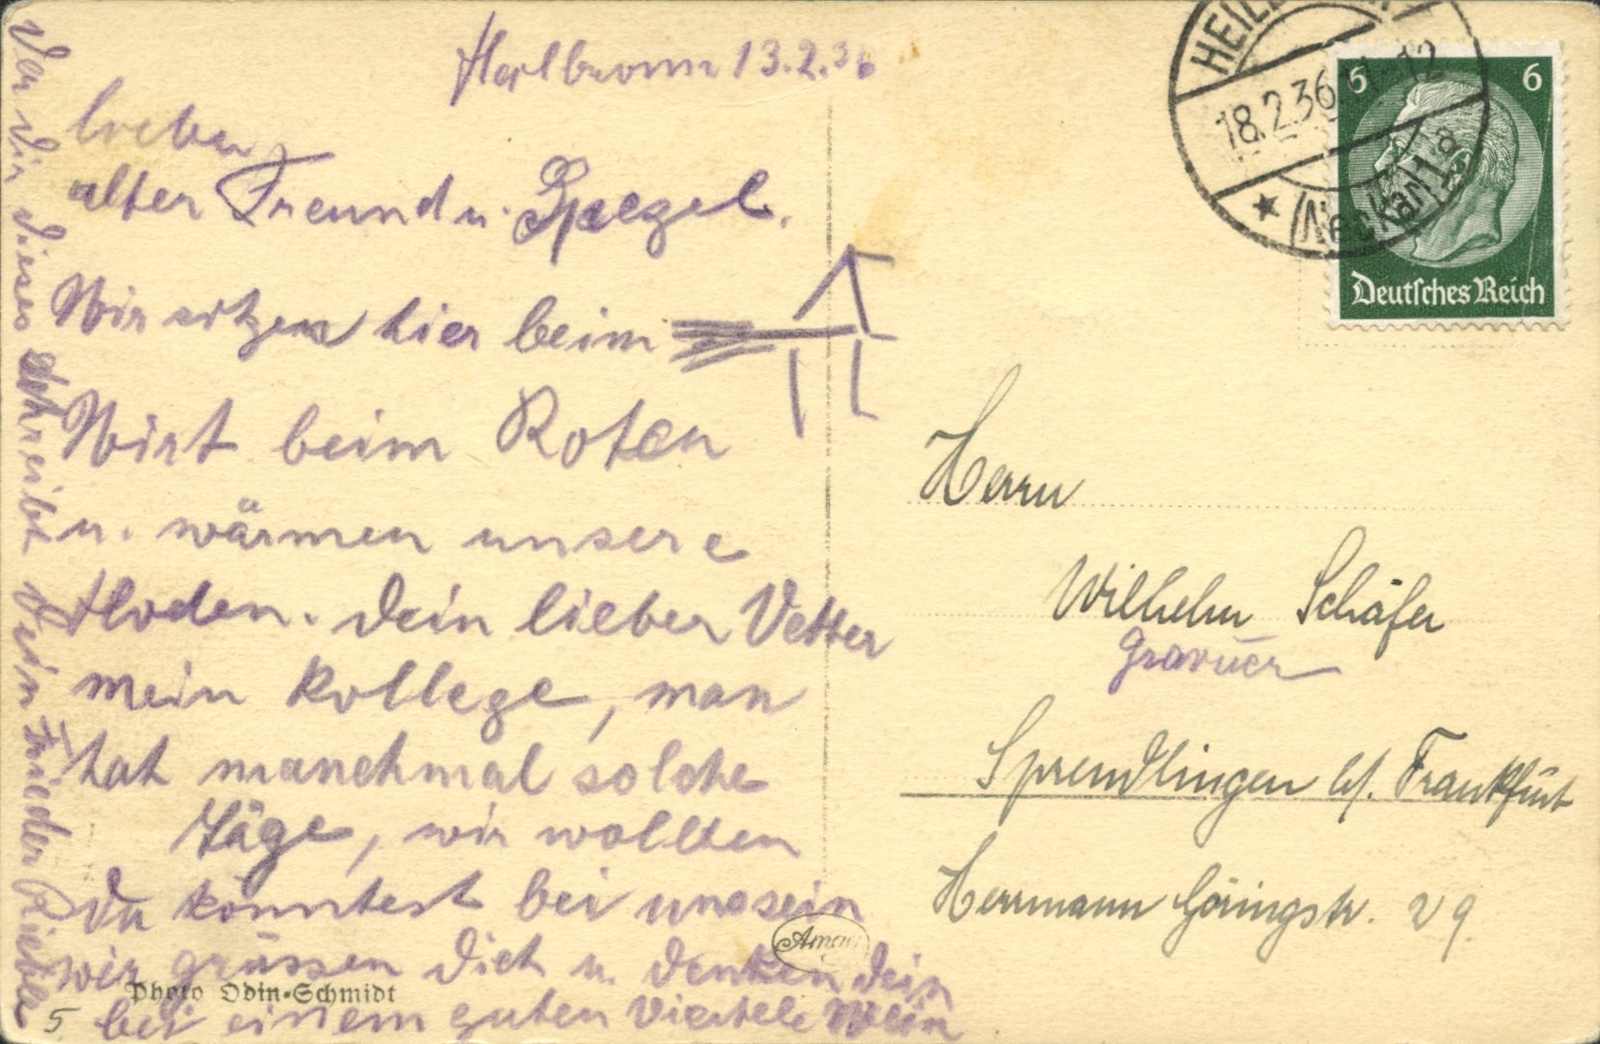 Heilbronn 13.2.36
Lieber
alter Freund u. Spezel.
Wir sitzen hier beim
Wirt beim Roten
u. wärmen unsere
Hoden. Dein lieber Vetter
mein Kollege, man
hat manchmal solche
Täge, wir wollten
Du könntest bei uns sein
wir grüssen Dich u. denken Dein
bei einem guten Viertele Wein
Der Dir dieses schreibt Dein Frieder Rieble
Photo Odin-Schmidt
5
18.2.36
12
(Neckar) 1a
6 6
Deutsches Reich
Herrn
Wilhelm Schäfer
Graveur
Sprendlingen b/. Frankfurt
Herrmann Göringstr. 29.